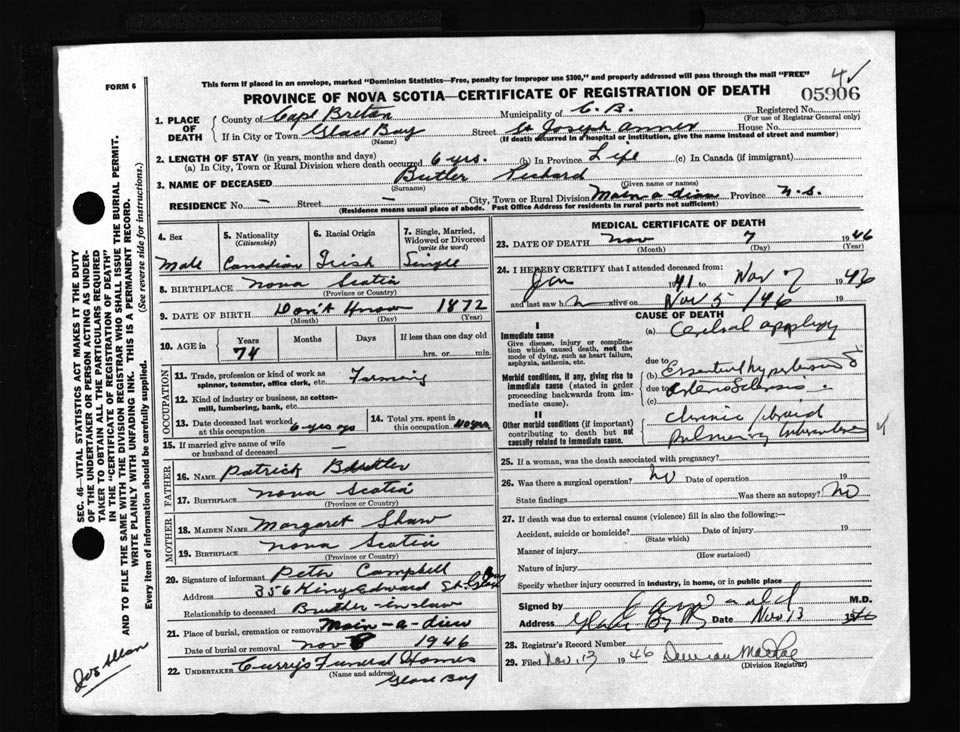 FORM 6
This form if placed in an envelope, marked "Dominion Statistics—Free, penalty for improper use $300," and properly addressed will pass through the mail "FREE"
4 ✓
PROVINCE OF NOVA SCOTIA—CERTIFICATE OF REGISTRATION OF DEATH
05906
1. PLACE OF DEATH
County of Cape Breton Municipality of C. B. Registered No.
(For use of Registrar General only)
If in City or Town Glace Bay Street St Joseph Annex House No.
(Name) (If death occurred in a hospital or institution, give the name instead of street and number)
2. LENGTH OF STAY (in years, months and days)
(a) In City, Town or Rural Division where death occurred 6 yrs. (b) In Province Life (c) In Canada (if immigrant)
3. NAME OF DECEASED Butler Richard
(Surname) (Given name or names)
RESIDENCE No. – Street – City, Town or Rural Division Main-a-dieu Province N. S.
(Residence means usual place of abode. Post Office Address for residents in rural parts not sufficient)
4. Sex
5. Nationality (Citizenship)
6. Racial Origin
7. Single, Married, Widowed or Divorced (write the word)
Male Canadian Irish Single
8. BIRTHPLACE Nova Scotia
(Province or Country)
9. DATE OF BIRTH Don't Know 1872
(Month) (Day) (Year)
10. AGE in Years Months Days If less than one day old
74 hrs. or min.
OCCUPATION
11. Trade, profession or kind of work as spinner, teamster, office clerk, etc. Farming
12. Kind of industry or business, as cotton-mill, lumbering, bank, etc.
13. Date deceased last worked at this occupation 6 yrs ago
14. Total yrs. spent in this occupation 40 years
15. If married give name of wife or husband of deceased
FATHER
16. NAME Patrick Butler
17. BIRTHPLACE Nova Scotia
MOTHER
18. MAIDEN NAME Margaret Shaw
19. BIRTHPLACE Nova Scotia
(Province or Country)
20. Signature of informant Peter Campbell
Address 356 King Edward St. Glace Bay
Relationship to deceased Brother-in-law
21. Place of burial, cremation or removal Main-a-dieu
Date of burial or removal Nov 8 1946
22. UNDERTAKER Curry's Funeral Homes
(Name and address)
Glace Bay
MEDICAL CERTIFICATE OF DEATH
23. DATE OF DEATH Nov 7 1946
(Month) (Day) (Year)
24. I HEREBY CERTIFY that I attended deceased from:
Jan 1941 to Nov 7 1946
and last saw h m alive on Nov 5 1946 19
CAUSE OF DEATH
I
Immediate cause
Give disease, injury or complication which caused death, not the mode of dying, such as heart failure, asphyxia, asthenia, etc.
(a) Cerebral apoplexy
due to
Morbid conditions, if any, giving rise to immediate cause (stated in order proceeding backwards from immediate cause).
(b) Essential hypertension &
due to arterio Sclerosis.
(c)
II
Other morbid conditions (if important) contributing to death but not causally related to immediate cause.
Chronic fibroid
Pulmonary tuberculosis
25. If a woman, was the death associated with pregnancy?
26. Was there a surgical operation? No Date of operation 19
State findings Was there an autopsy? No
27. If death was due to external causes (violence) fill in also the following:—
Accident, suicide or homicide? Date of injury 19
(State which)
Manner of injury
(How sustained)
Nature of injury
Specify whether injury occurred in industry, in home, or in public place
Signed by M.D.
Address Glace Bay Date Nov 13 1946
28. Registrar's Record Number
29. Filed Nov. 13 1946 Duncan MacRae
(Division Registrar)
SEC. 46—VITAL STATISTICS ACT MAKES IT THE DUTY
OF THE UNDERTAKER OR PERSON ACTING AS UNDER-
TAKER TO OBTAIN ALL THE PARTICULARS REQUIRED
IN THE "CERTIFICATE OF REGISTRATION OF DEATH"
AND TO FILE THE SAME WITH THE DIVISION REGISTRAR WHO SHALL ISSUE THE BURIAL PERMIT.
WRITE PLAINLY WITH UNFADING INK. THIS IS A PERMANENT RECORD.
Every item of information should be carefully supplied. (See reverse side for instructions.)
Joe Allan